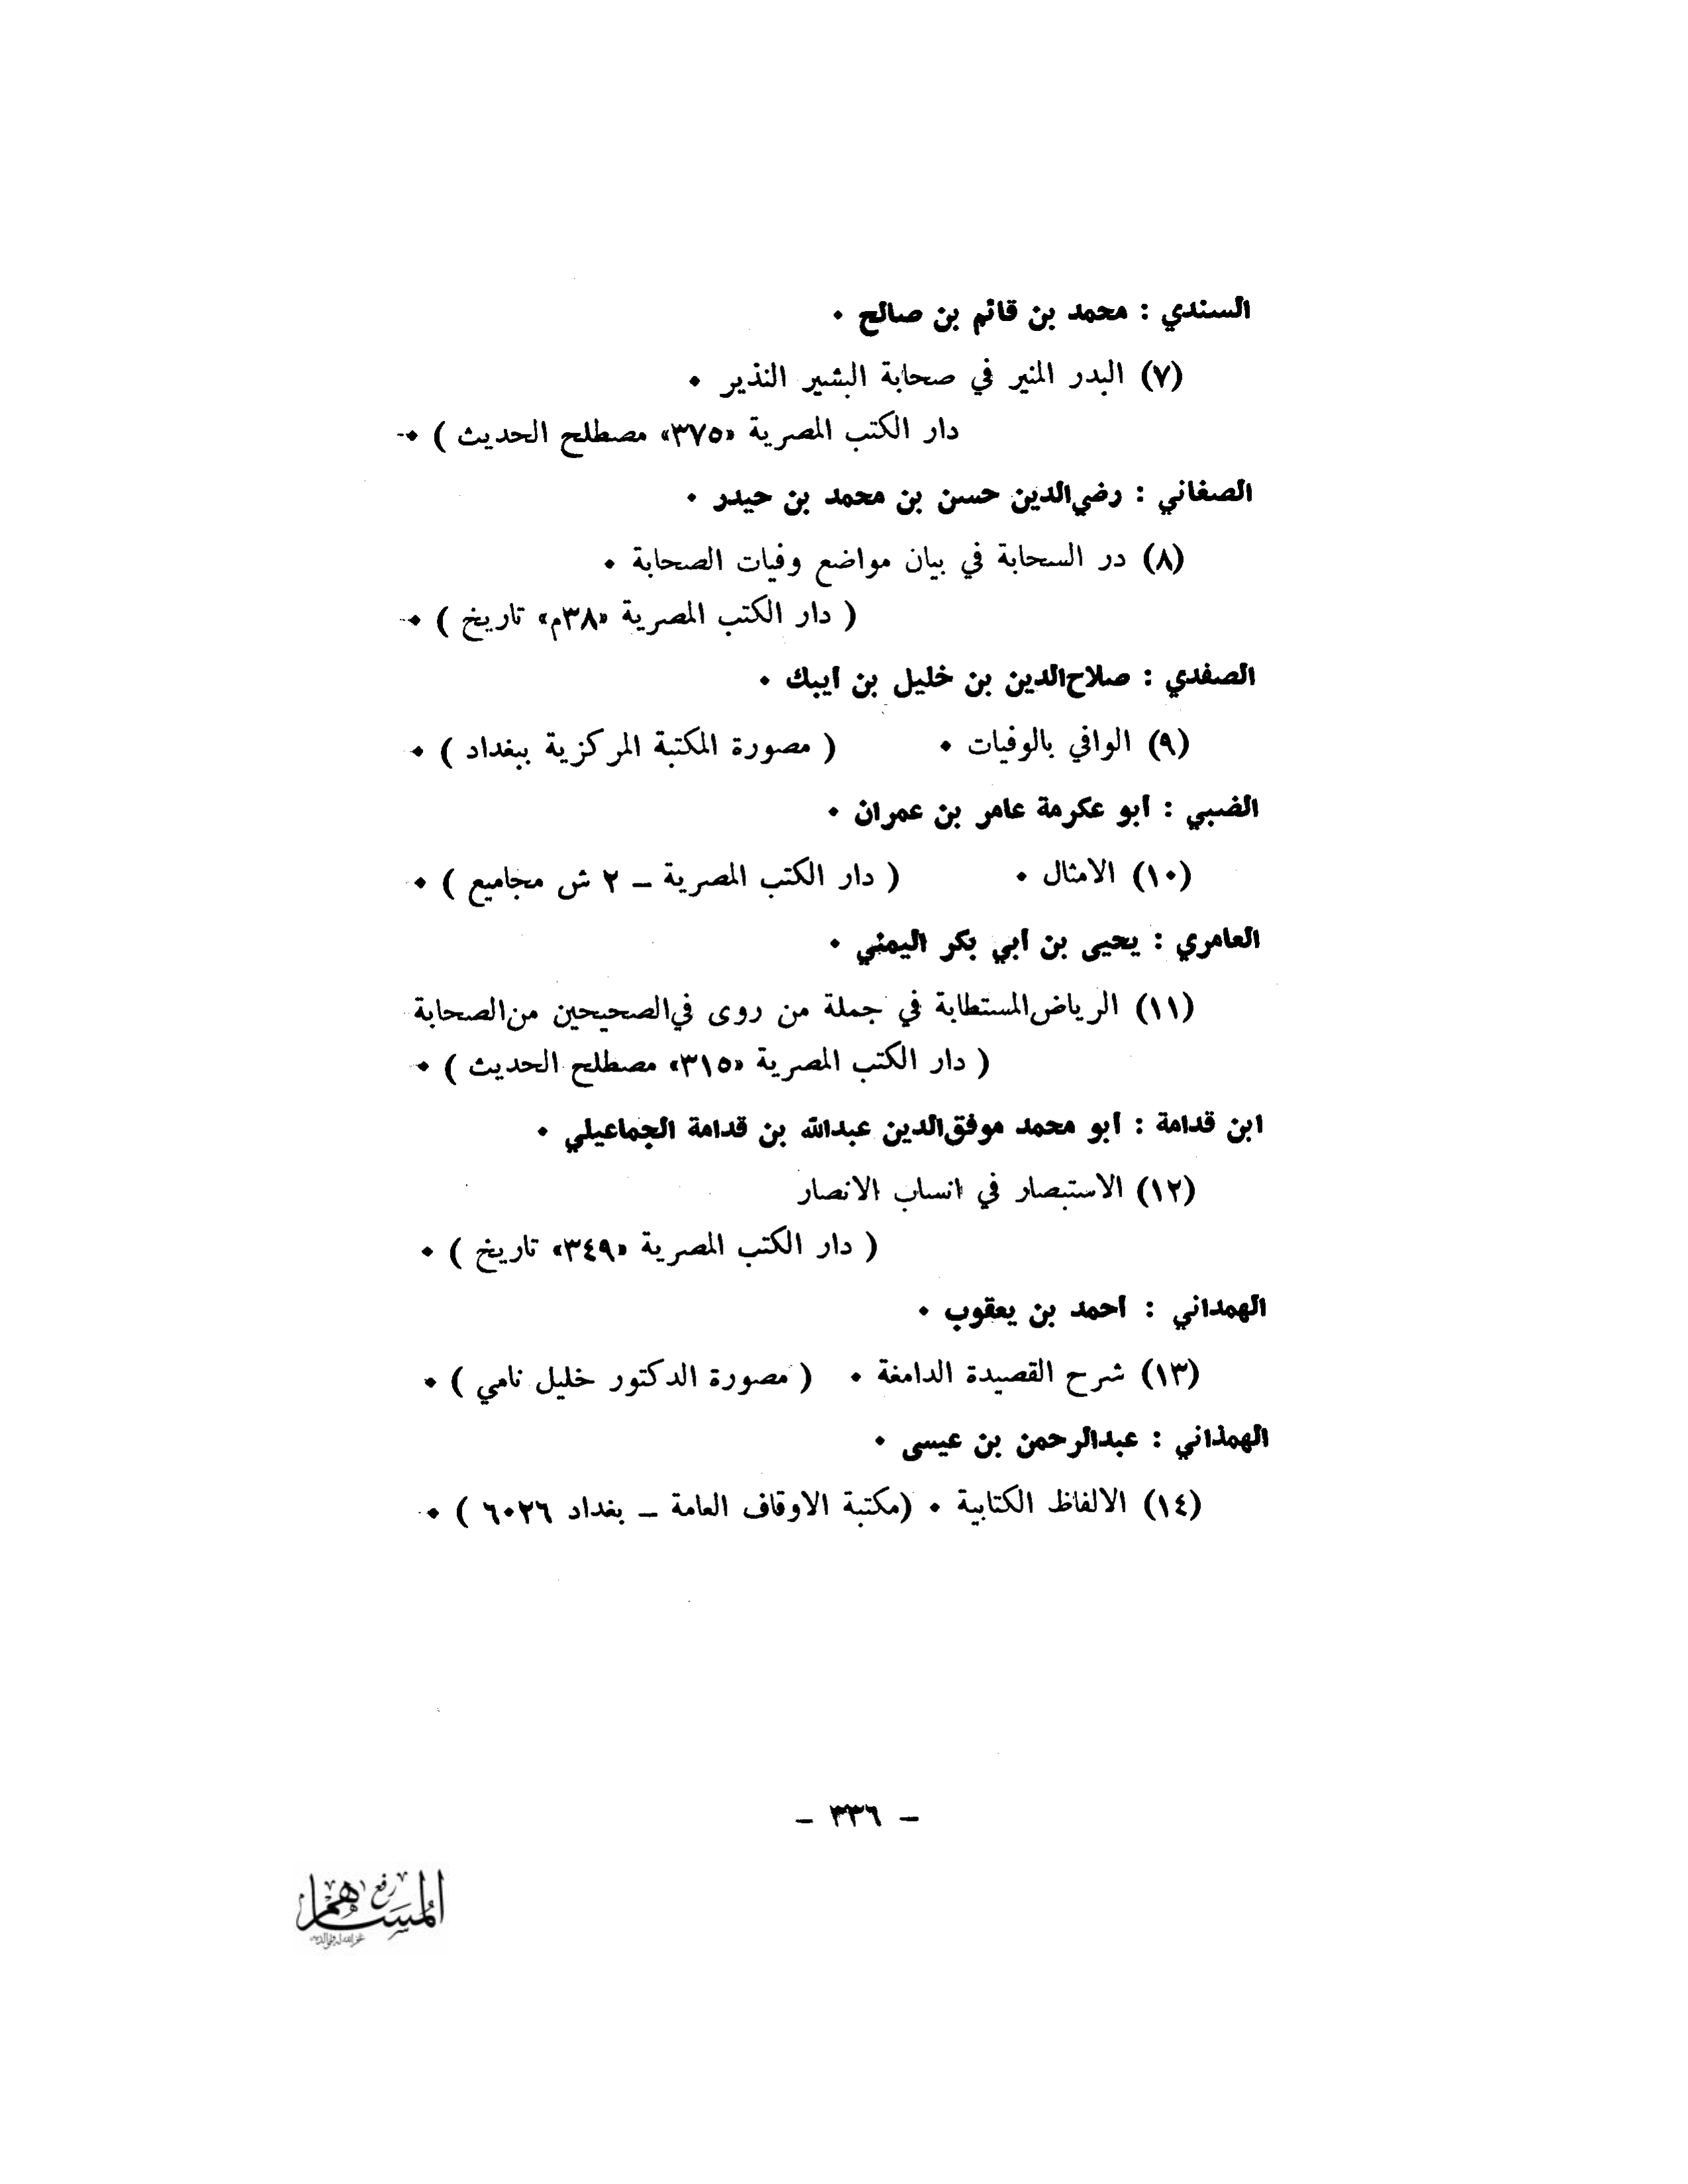 السندي : محمد بن قائم بن صالح ٠
(٧) البدر المنير في صحابة البشير النذير ٠
دار الكتب المصرية «٣٧٥» مصطلح الحديث ) ٠
الصغاني : رضي‌الدين حسن بن محمد بن حيدر ٠
(٨) در السحابة في بيان مواضع وفيات الصحابة ٠
( دار الكتب المصرية «٣٨م» تاريخ ) ٠
الصفدي : صلاح‌الدين بن خليل بن ايبك ٠
(٩) الوافي بالوفيات ٠ ( مصورة المكتبة المركزية ببغداد ) ٠
الضبي : ابو عكرمة عامر بن عمران ٠
(١٠) الامثال ٠ ( دار الكتب المصرية ــ ٢ ش مجاميع ) ٠
العامري : يحيى بن ابي بكر اليمني ٠
(١١) الرياض‌المستطابة في جملة من روى في‌الصحيحين من‌الصحابة
( دار الكتب المصرية «٣١٥» مصطلح الحديث ) ٠
ابن قدامة : ابو محمد موفق‌الدين عبدالله بن قدامة الجماعيلي ٠
(١٢) الاستبصار في انساب الانصار
( دار الكتب المصرية «٣٤٩» تاريخ ) ٠
الهمداني : احمد بن يعقوب ٠
(١٣) شرح القصيدة الدامغة ٠ ( مصورة الدكتور خليل نامي ) ٠
الهمذاني : عبدالرحمن بن عيسى ٠
(١٤) الالفاظ الكتابية ٠ (مكتبة الاوقاف العامة ــ بغداد ٦٠٢٦ ) ٠
– ٣٣٦ –